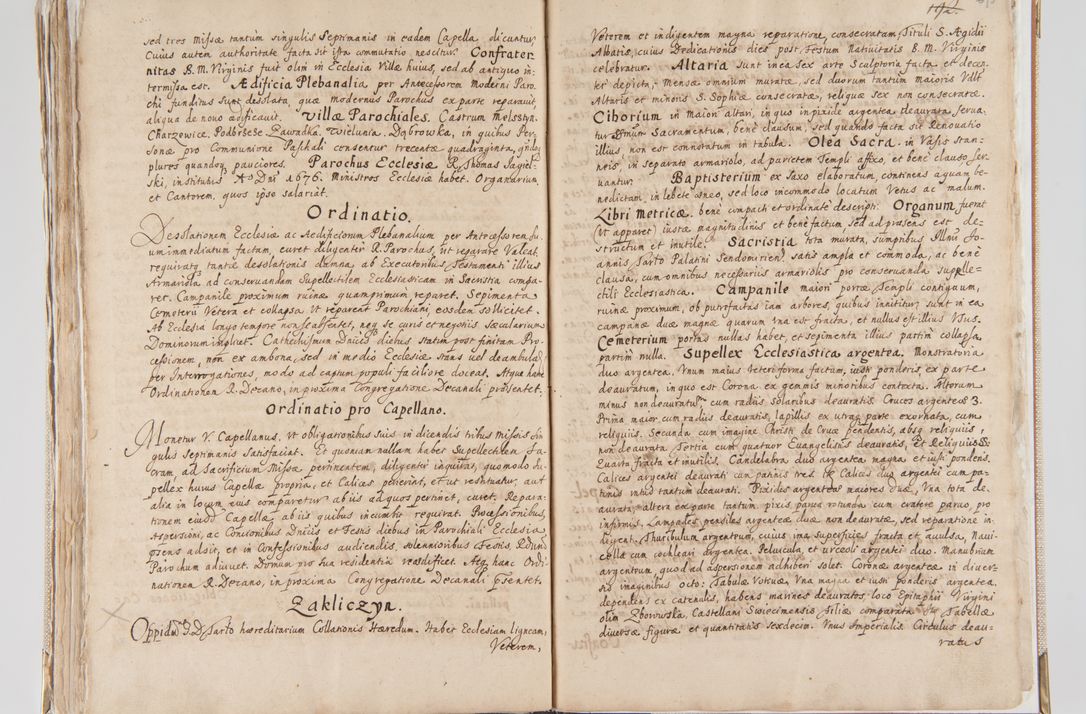 sed tres Missæ tantùm singulis Septimanis in eadem Capella dicuntur,
Cuius autem authoritate facta sit ista commutatio nescitur. Confrater
nitas B. M. Virginis fuit olim in Ecclesia Villæ huius, sed ab antiquo in:
termissa est. Ædificia Plebanalia per Antecessorem Moderni Paro
chi funditus sunt desolata, quæ modernus Parochus ex parte reparauit,
aliqua de nouo ædificauit. Villæ Parochiales. Castrum Melsstyn.
Charzowice. Podbrzeże Zawadka. Wielunia. Dąbrowka, in quibus Per
sonæ pro Communione Paschali censentur trecentæ quadraginta,
plures quandoq pauciores. Parochus Ecclesiæ R. Thomas Jagiel-
ski, institutus Aº Dni 1676. Ministros Ecclesiæ habet. Organarium,
et Cantorem, quos ipse salariat.
Ordinatio.
Desolationem Ecclesiæ ac Aedificiorum Plebanalium per Antecessorem su
um immediatum factam, curet diligenter R. Parochus, ut reparare Valeat,
requirat tantæ desolationis damna, ab Executoribus Testamenti illius
Armariola ad conservandam Supellectilem Ecclesiasticam in Sacristia compa
ret. Campanile proximum ruinæ quamprimum reparet. Sepimenta
Cemeterij Vetera et collapsa Vt reparent Parochiani, eosdem sollicitet.
Ab Ecclesia longo tempore non se absentet, neq se curis et negotijs sæcularium
Dominorum implicet. Cathechismum Dnicis diebus statim post finitam Pro
cessionem, non ex ambona, sed in medio Ecclesiæ stans uel deambulás
per Interrogationes, modo ad captum populi faciliore doceat. Atqua hanc
Ordinationem R. Decano, in proxima Congregatione Decanali præsentet.
Ordinatio pro Capellano.
Monetur V. Capellanus, Vt obligationibus suis in dicendis tribus Missis sin
gulis Septimanis Satisfaciat. Et quoniam nullam habet Supellectilem Sa
cram, ad Sacrificium Missæ pertinentem, diligenter inquirat, quomodo su
pellex huius Capellæ propria, et Calicas perierint, et ut restituatur, aut
alia in locum eius comparetur ab iis ad quos pertinet, curet. Repara-
tionem eiusd Capellæ ab iis quibus incumbit requirat. Processionibus,
Aspersioni, ac Concionibus Dnicis et Festis diebus in Parochiali Ecclesia
præsens adsit, et in Confessionibus audiendis solennioribus Festis, Rdum
Parochum adiuuet. Domum pro sua residentia reædificet. Atq hanc Ordi
nationem R. Decano, in proxima Congregatione Decanali præsentet.
Zakliczyn.
Oppidū D. D. Jarto hæreditarium Collationis Hæredum. Habet Ecclesiam ligneam,
Veterem,
Veterem et indigentem magna reparatione, consecratam, Tituli S. Ægidii
Abbatis, cuius Dedicationis dies post Festum Natiuitatis B. M. Virginis
celebratur. Altaria sunt in ea Sex arte Sculptoria facta, et decen-
ter depicta, mensæ omnium muratæ, sed duorum tantum maioris Vidt
Altaris et minoris S. Sophiæ consecratæ, reliquæ Sex non consecratæ.
Ciborium in maiori altari, in quo in pixide argentea deaurata serua,
tur Smum Sacramentum, bene clausum, sed quando facta sit Renouatio
illius, non est connotatum in tabula. Olea Sacra. in Vasis Stan-
neis, in separato armariolo, ad parietem Templi affixo, et bene clauso ser
uantur. Baptisterium ex saxo elaboratum, continens aquam be-
nedictam, in lebete æneo, sed loco incommodo locatum Vetus ac malum.
Libri Metricæ. bene compacti et ordinate descripti. Organum fuerat
(Vt apparet) iustæ magnitudinis et bene factum sed ad præsens est de-
structum et inutile. Sacristia tota murata, sumptibus Illmi Jo-
annis Jarto Palatini Sendomirien. satis ampla et commoda, ac bene
clausa, cum omnibus necessariis armariolis pro conservanda supelle-
ctili Ecclesiastica. Campanile maiori portæ Templi contiguum,
ruinæ proximum, ob putrefactas iam arbores, quibus innititur, sunt in eo
campanæ duæ magnæ quarum Vna est fracta, et nullus est illius Vsus.
Cemeterium portas nullas habet, et sepimenta illius partim collapsa,
partim nulla. Supellex Ecclesiastica argentea. Monstratoria
duo argentea. Vnum maius Veteri forma factum, iusti ponderis, ex parte
deauratum, in quo est Corona ex gemmis minoribus contexta. Alterum
minus non deauratum, cum radiis solaribus deauratis. Cruces argenteæ 3.
Prima maior cum radiis deauratis, lapillis ex utraq parte exornata, cum
reliquiis. Secunda cum imagine Christi de Cruce pendentis, absq reliquiis,
non deaurata. Tertia cum quatuor Euangelistis deauratis, et Reliquiis SS.
Quarta fracta et inutilis. Candelabra duo argentea magna et iusti ponderis.
Calices argentei deaurati cum patinis tres. Calices duo argentei cum pa-
tinis intus tantum deaurati. Pixides argenteæ maiores duæ, Vna tota de,
aurata, altera ex parte tantum. pixis parua rotunda cum cratere paruo, pro
infirmis. Lampades pensiles argenteæ duæ non deauratæ, sed reparatione in
digent. Thuribulum argenteum, cuius ima superficies fracta et auulsa, Naui
cella cum cochleari argentea. Peluicula, et urceoli argentei duo. Manubrium
argenteum, quod ad aspersionem adhiberi solet. Coronæ argenteæ in diuer-
sis imaginibus octo: Tabulæ Votiuæ. Vna magna et iusti ponderis argentea,
dependens ex catenulis, habens margines deauratos, loco Epitaphii Virgini
olim Zborowska, Castellani Swiecimensis filiæ comparata. Tabellæ
diuersæ figuræ et quantitatis sexdecim. Vnus Imperialis. Circulus deau-
ratus